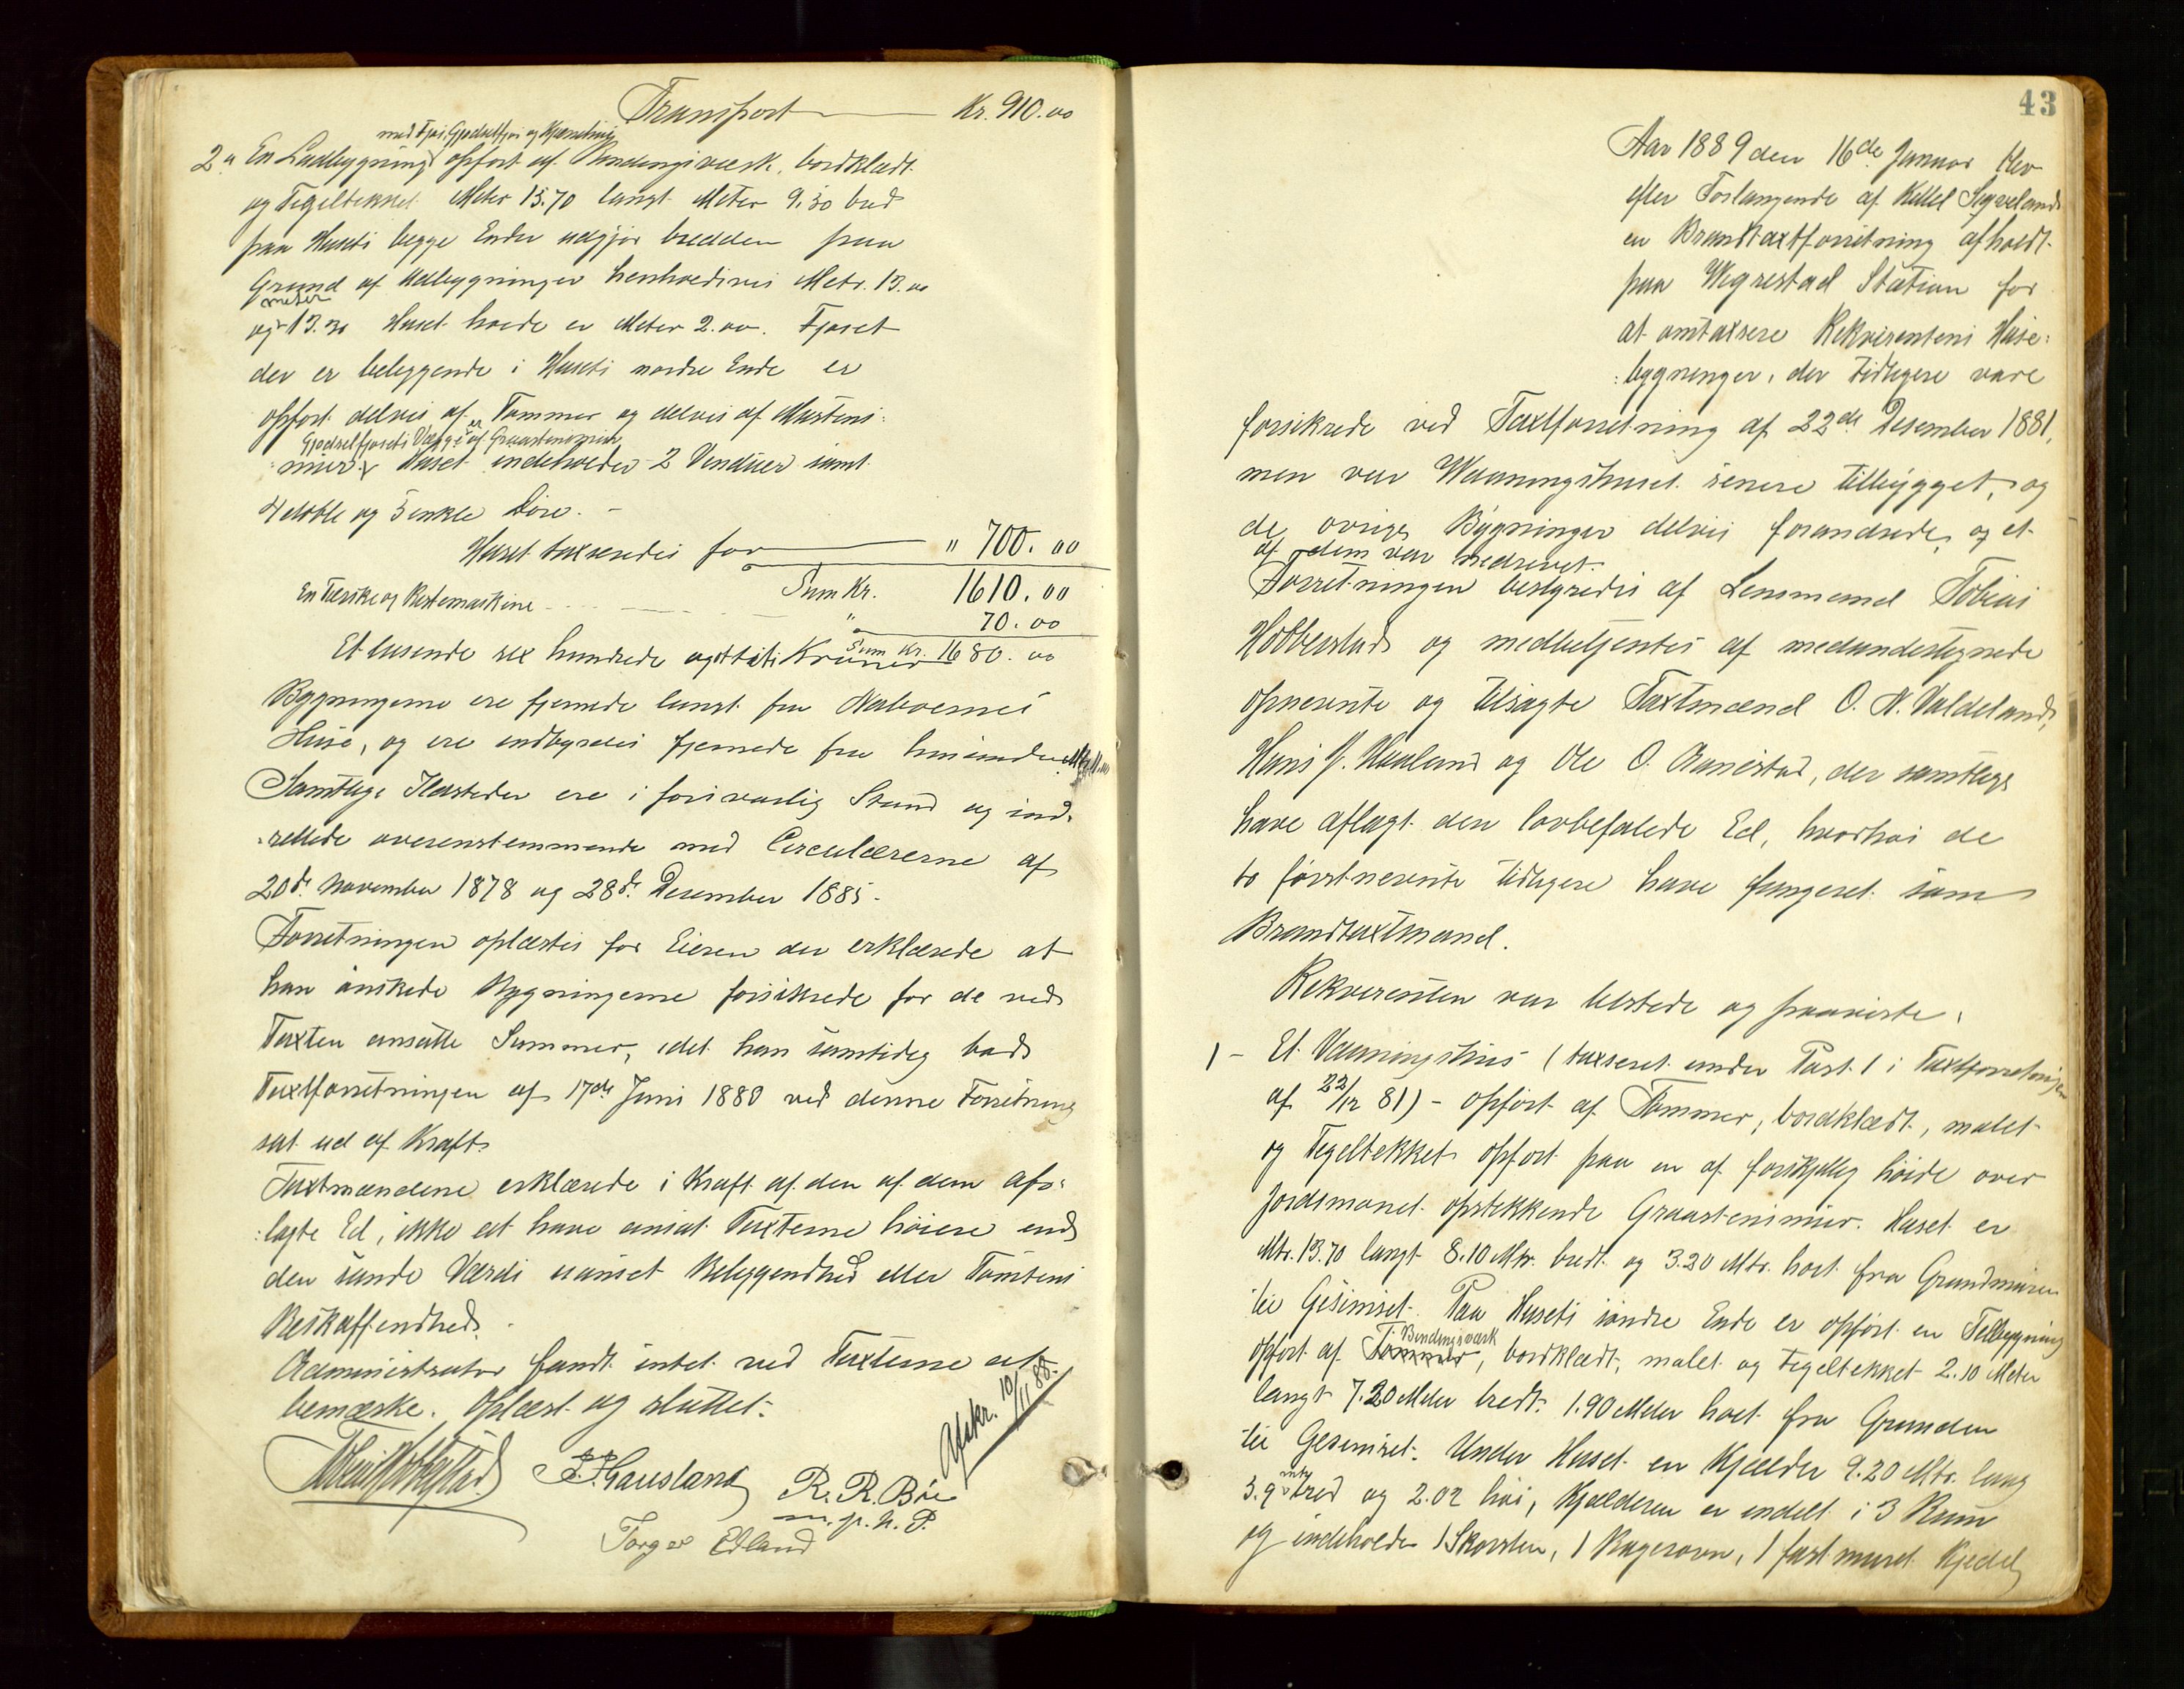 Transport Kr. 910.00
med Fjøs, Gjødselfjøs og
2. En Ladbygning opført af Bindingsværk, bordklædt
og Tegeltekket Meter 15.70 langt Meter 9.30 bred
paa Husets begge Ender udgjør bredden paa
Grund af Udbygninger henholdsvis Metr. 13.00
meter
og 13.30 Huset høide er Meter 2.00. Fjøset
der er beliggende i Husets nordre Ende er
opført delvis af Tømmer og delvis af Mursteens-
Gjødselfjøsets Vægge er af Graastensmur
mur. Huset indeholder 2 Vinduer samt
4 doble og 5 enkle Døre. -
Huset taxeredes for " 700.00
Sum Kr. 1610.00
En Tærske og Rystemaskine " 70.00
Sum Kr. 1680.00
Et tusende sex hundrede og otteti Kroner
Bygningerne ere fjernede langt fra Naboernes
Huse, og ere indbyrdes fjernede fra hinanden
Samtlige Ildsteder ere i forsvarlig Stand og ind-
-rettede overensstemmende med Circulærerne af
20de November 1878 og 28de Desember 1885.
Forretningen oplæstes for Eieren der erklærede at
han ønskede Bygningerne forsikrede for de ved
Taxten ansatte Summer, idet han samtidig bad
Taxtforretningen af 17de Juni 1880 ved denne Forretning
sat ud af Kraft.
Taxtmændene erklærede i Kraft af den af dem af-
-lagte Ed, ikke at have ansat Taxterne høiere end
den sande Værdi uanset Beliggenhed eller Tomtens
Beskaffendhed.
Administrator fandt intet ved Taxterne at
bemærke. Oplæst og sluttet.
Afskr. 10/11 88.
Tobias Hobberstad T. T. Hausland R. R. Bøe
m. p. n. P.
Torger Edland
43
Aar 1889 den 16de Januar blev
efter Forlangende af Kittel Sigveland
en Brandtaxtforretning afholdt
paa Vigrestad Station for
at omtaxere Rekvirentens Huse-
-bygninger, der tidligere vare
forsikrede ved Taxtforretning af 22de Desember 1881,
men var Vaaningshuset senere tilbygget, og
de øvrige Bygninger delvis forandrede, og et
af dem var nedrevet.
Forretningen bestyredes af Lensmand Tobias
Hobberstad og medbetjentes af medunderskrevne
opnevnte og tilsagte Taxtmænd O. N. Valdeland,
Hans J. Haaland og Ole O. Aanestad, der samtlige
have aflagt den lovbefalede Ed, hvorhos de
to førstnevnte tidligere have fungeret som
Brandtaxtmænd.
Rekvirenten var tilstede og paaviste:
1 - Et Vaaningshus (taxeret under Post 1 i Taxtforretningen
af 22/12 81) - opført af Tømmer, bordklædt, malet
og Tegeltekket opført paa en af forskjellig høide over
Jordsmonet opstekkende Graastensmur. Huset er
Mtr. 13.70 langt 8.10 Mtr. bredt og 3.20 Mtr. høit fra Grundmuren
til Gesimset. Paa Husets søndre Ende er opført en Tilbygning
Bindingsværk
opført af Tømmer, bordklædt, malet og tegeltekket 2.10 Meter
langt 7.20 Meter bredt. 1.90 Meter høit fra Grunden
til Gesimset. Under Huset en Kjælder 9.20 Mtr. lang
mtr
3.90 bred og 2.02 høi, Kjælderen er inddelt i 3 Rum
og indeholder 1 Skorsten, 1 Bagerovn, 1 fastmuret Kjedel